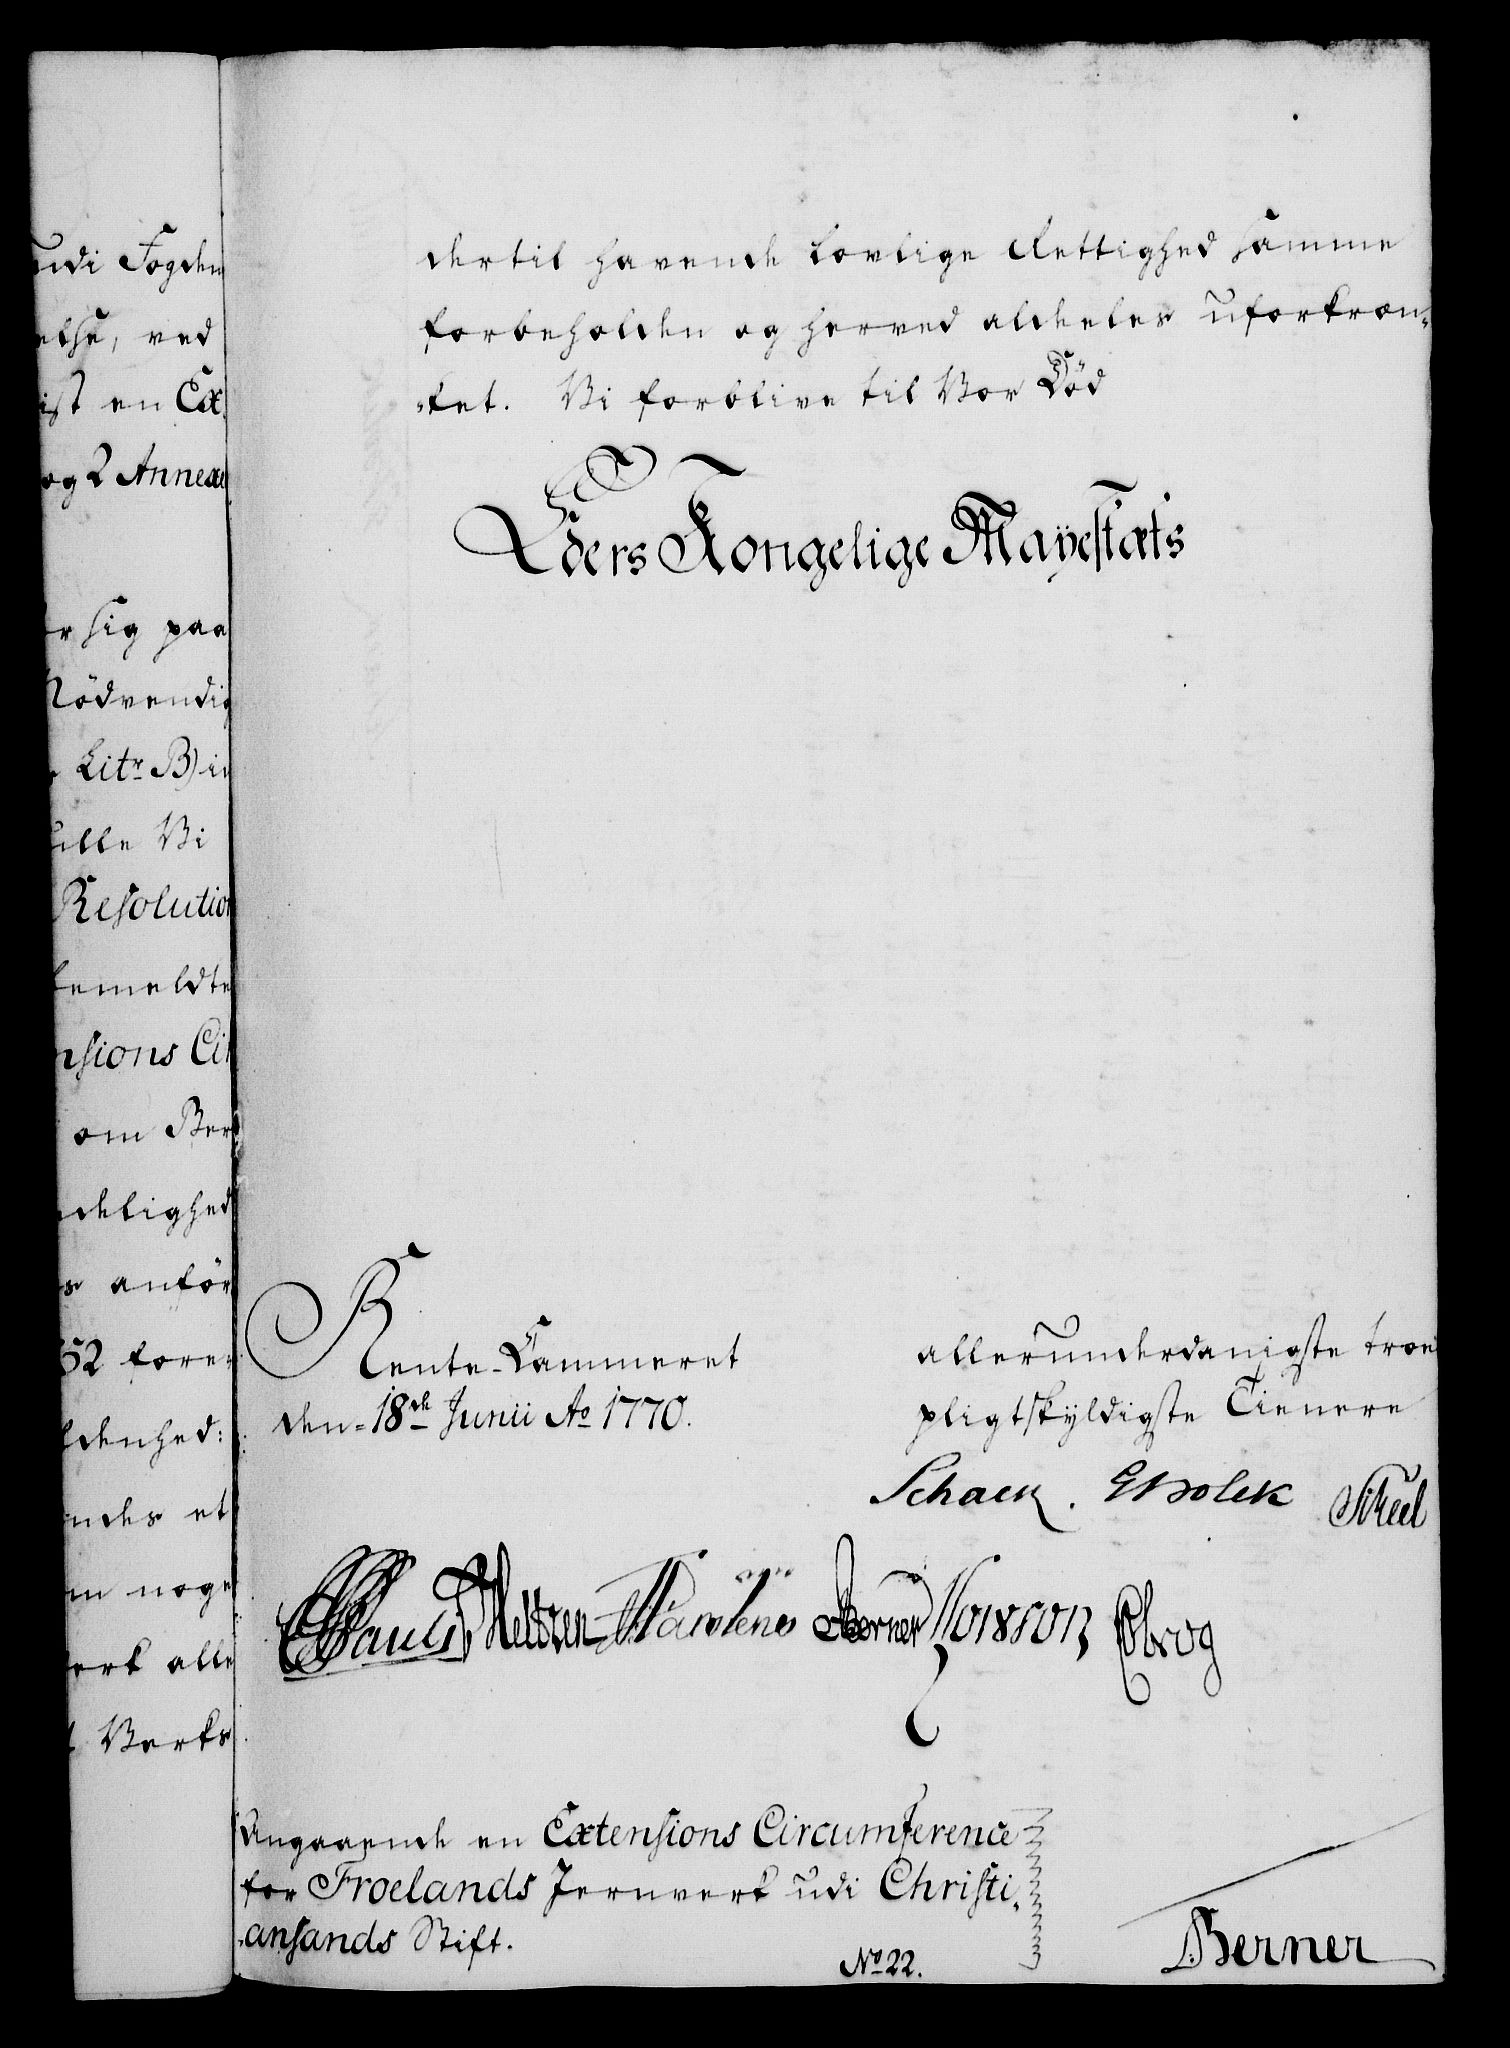 udi Fogden
else, ved
ist en Ex
og 2 Annexe
er sig paa
Nödvendig
Litr B) in
ulle Vi
Resolution
bemeldte
nsions Cir
om Ber
delighed
s anför
52 fore
ldenhed:
endes et
m noge
erk alle
t Verks
dertil havende Lovlige Rettighed samme
forbeholden og herved aldeeles uforkræn„
„ket. Vi forblive til Vor Död
Eders Kongelige Mayestæts
Rente-Cammeret
den 18de Junii Ao 1770.
allerunderdanigste troe
pligtskyldigste Tienere
Schack. Holck Skeel
Pauli Meltzen Martens Berner Hoisson Ebrog
Angaaende en Extensions Circumference
for Froelands Jernverk udi Christi„
„ansands Stift.
No 22.
Berner